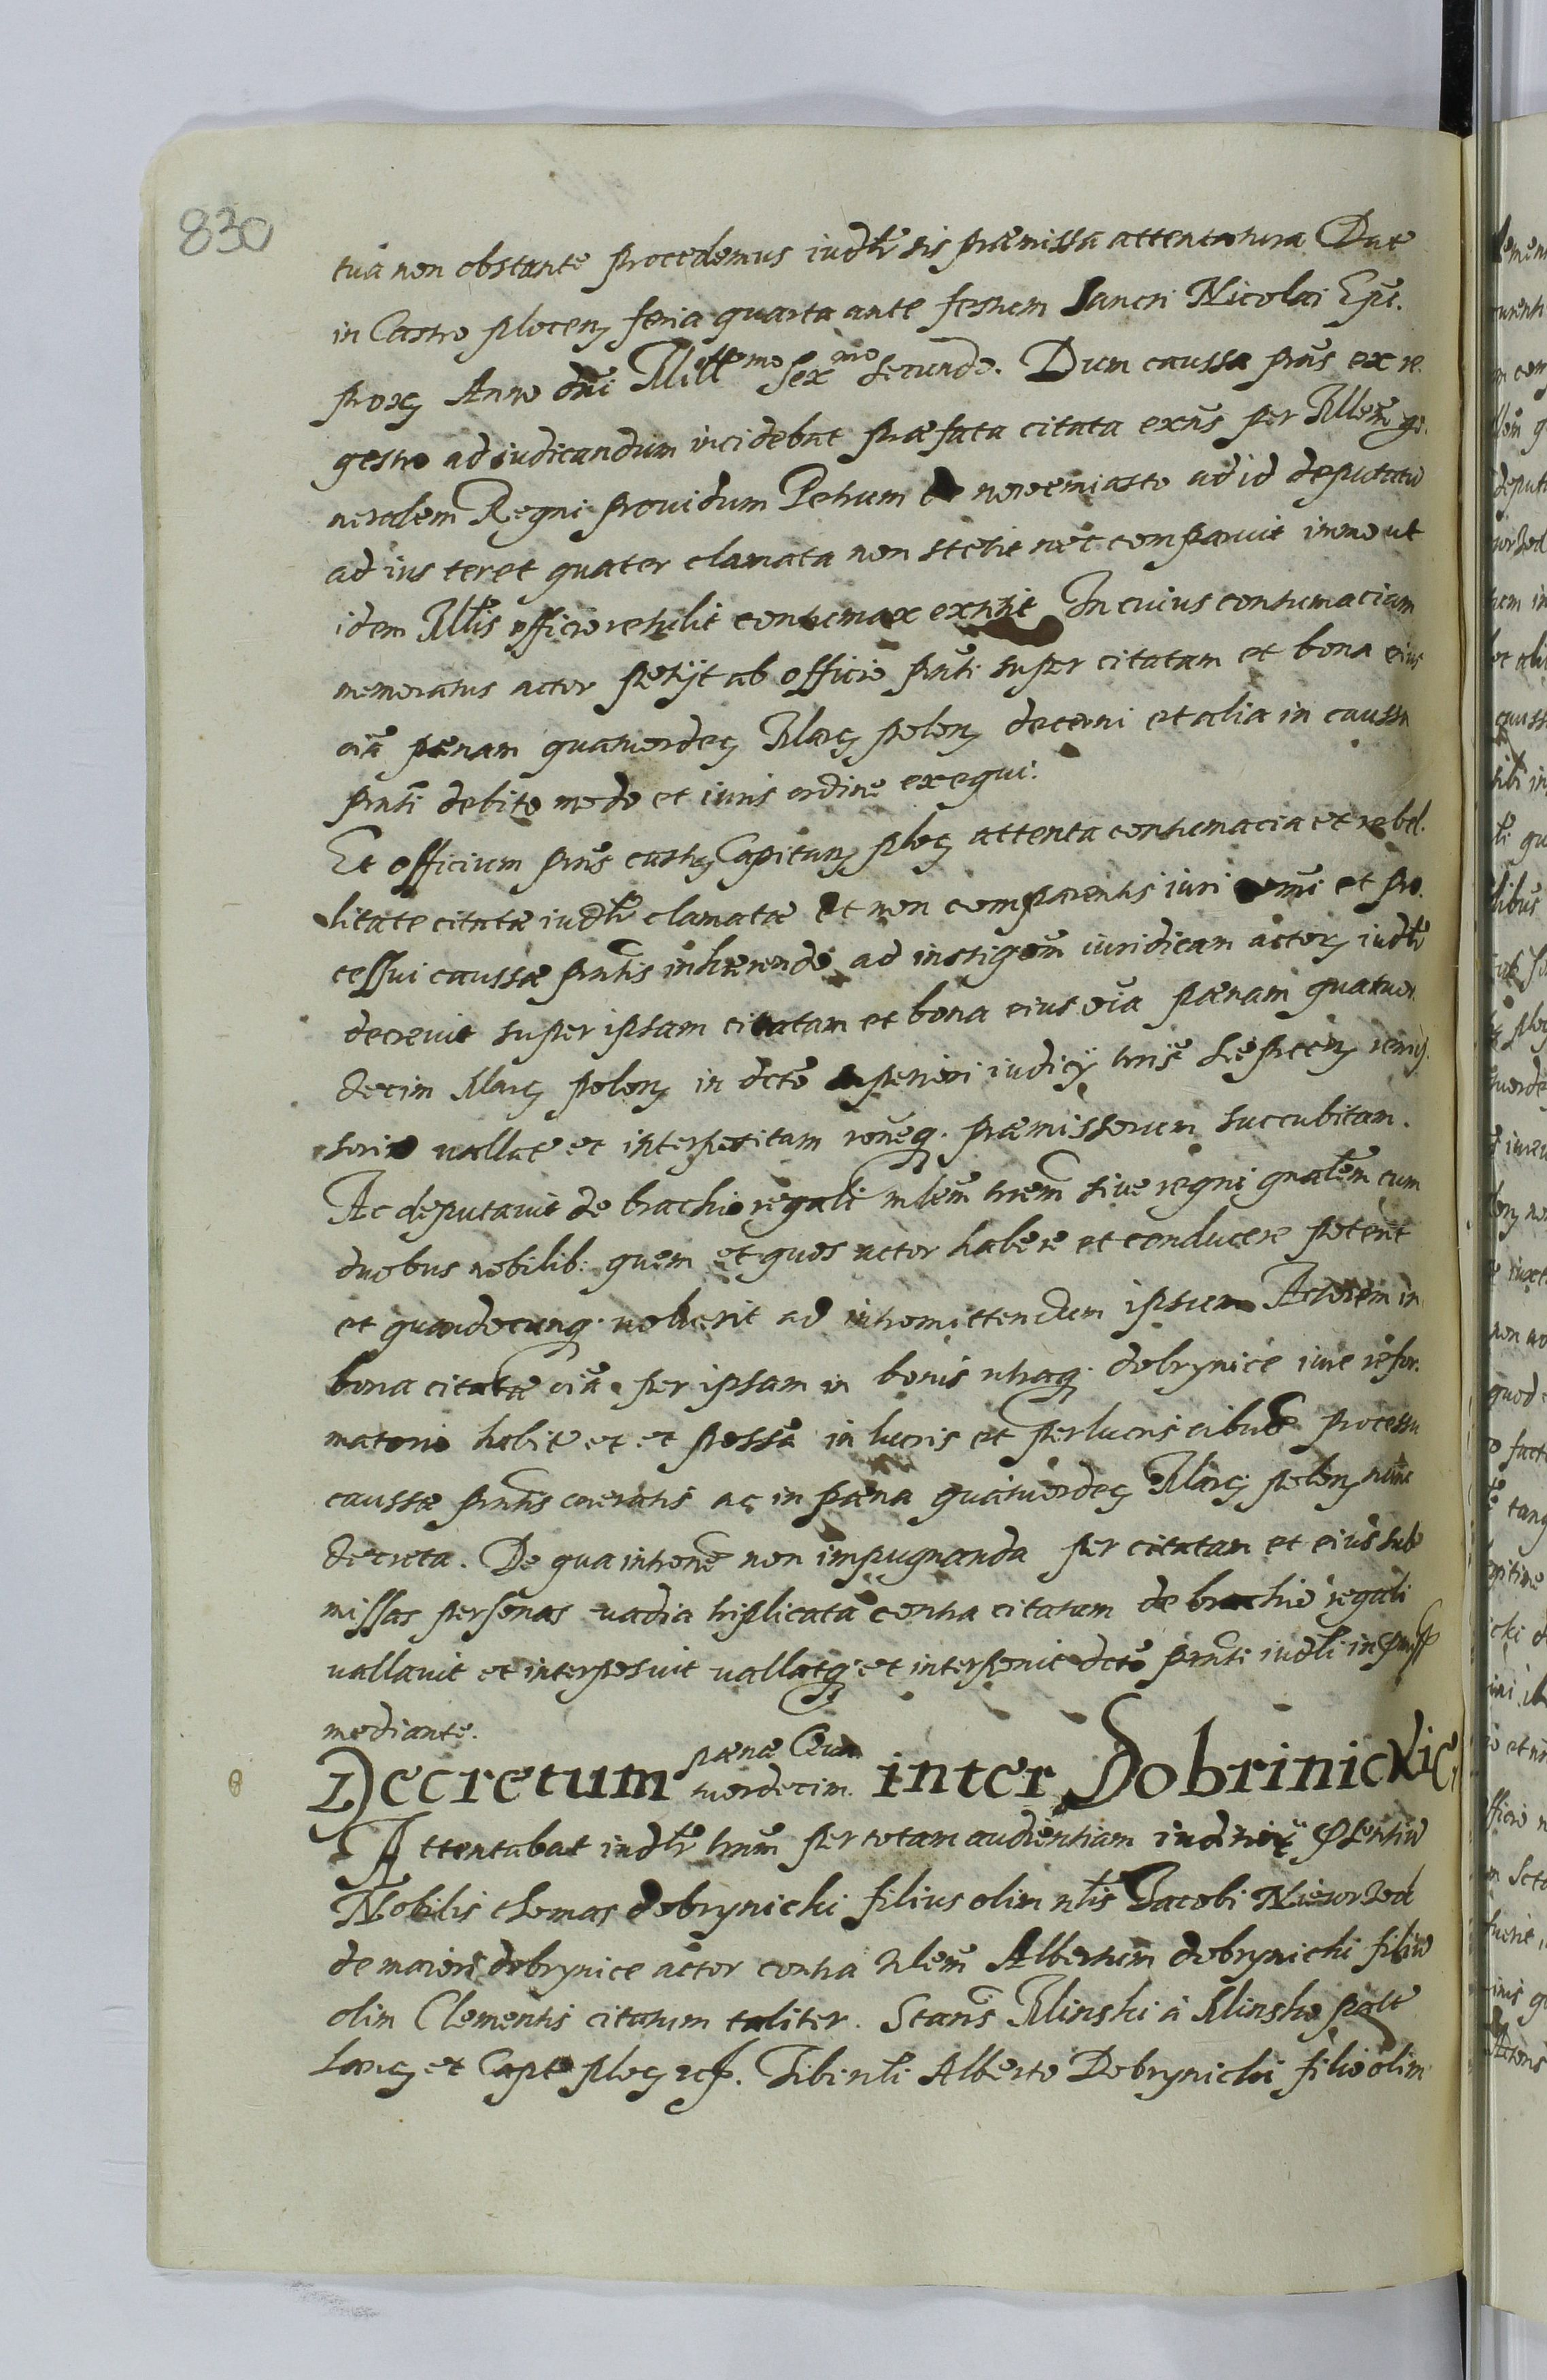 830
tua non obstante procedemus iudlr sis præmissa attentatura Dat
in Castro plocen feria quarta ante festum Sancti Nicolai Epi.
prox Anno dni Mill mo Sex mo secundo. Dum caussa prns ex re
gestro ad iudicandum incidebat præfata citata exns per Mlem ge
neralem Regni providum Petrum de novemiasto ad id deputatu
ad ius ter et quater clamata non stetit nec comparuit immo ut
idem Mlis officio retulit contumax extitit In cuius contumaciam
memoratus actor petijt ab officio pnti super citatam et bona eius
oia pænam quatuordec Marc polon decerni et alia in caussa
pnti debito modo et iuris ordine exequi.
Et officium prns castr Capitan ploc attenta contumacia et rebel
litate citatæ iudlr clamatæ et non comparentis iuri omi et pro
cessui caussæ pntis inhærendo ad instigem iuridicam actor iudlr
decrevit super ipsam citatam et bona eius oia pænam quatuor
decim Marc polon in dcto superiori iudicij
sorio vallat et interpositam roneq. præmissorum succubitam.
Ac deputavit de brachio regali mlem trem sive regni gnalem cum
duobus nobilib. quem et quos actor habere et conducere poterit
et quandocunq. voluerit ad intromittendum ipsum Actorem in
bona citatæ oia per ipsam in bonis utraq. dobrynice iure refor
matorio habit et et possa in lucris et perlucris cibus processu
caussæ pntis coneratis ac in pæna quatuordec Marc polon nunc
decreta. De qua introne non impugnanda per citatam et eius sub
missas personas vadia triplicata contra citatam de brachio regali
vallavit et interposuit vallatq. et interponit dcto pnti iudli in pmiss
mediante.
Decretum pænæ Qua tuordecim. inter Dobrinickie.
Attentabat iudlr trum per totam audientiam iuditiy psentiu
Nobilis thomas dobrynicki filius olim nlis Jacobi Niewrzed
de maiori dobrynice actor contra Nlem Albertum dobrynicki filiu
olim Clementis citatum taliter. Stans Minski à Minsko palt
Lanc et Capt ploc etc. Tibi nli Alberto Dobrynicki filio olim